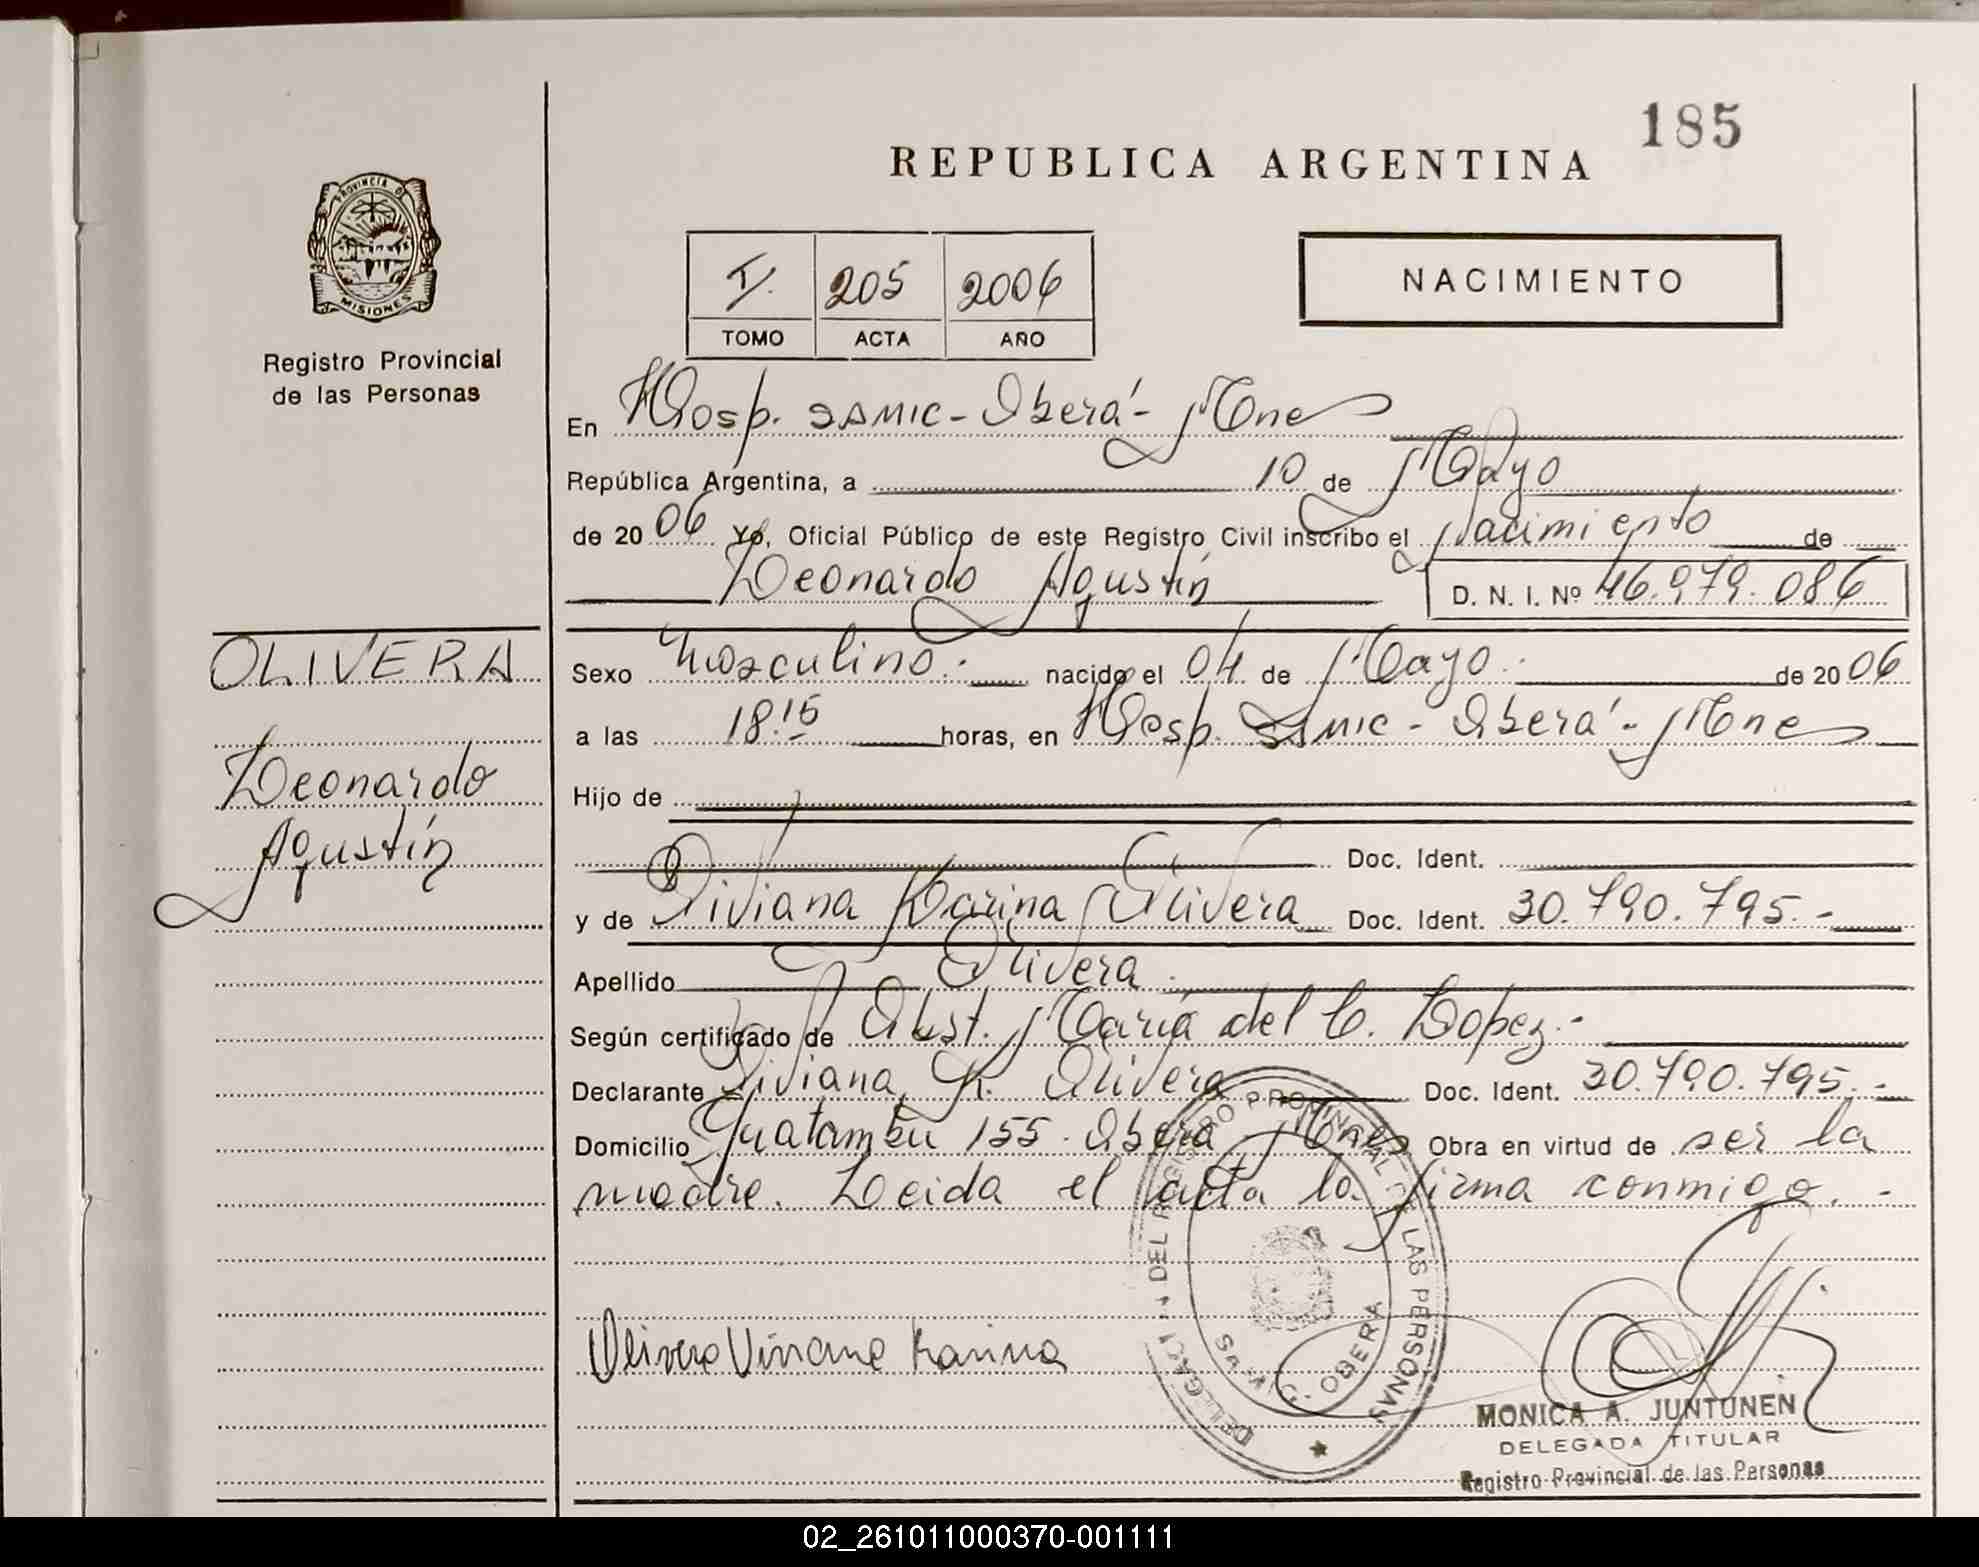 185
REPUBLICA ARGENTINA
PROVINCIA DE
MISIONES
Registro Provincial
de las Personas
I 205 2006
TOMO ACTA AÑO
NACIMIENTO
En Hosp. SAMIC - Oberá - Mnes
República Argentina, a 10 de Mayo
de 2006 Yo, Oficial Público de este Registro Civil inscribo el Nacimiento de
Leonardo Agustín D. N. I. Nº 46.979.086
OLIVERA
Leonardo
Agustín
Sexo Masculino.- nacido el 04 de Mayo.- de 2006
a las 18:15 horas, en Hosp. SAMIC - Oberá - Mnes
Hijo de
Doc. Ident.
y de Viviana Karina Olivera Doc. Ident. 30.790.795.-
Apellido Olivera
Según certificado de Obst. María del C. Lopez.-
Declarante Viviana K. Olivera Doc. Ident. 30.790.795.-
Domicilio Guatambu 155 - Oberá Mnes Obra en virtud de ser la
madre. Leida el acta la firma conmigo.-
Olivera Viviana Karina
DELEGACION DEL REGISTRO PROVINCIAL DE LAS PERSONAS
OBERA
MONICA A. JUNTUNEN
DELEGADA TITULAR
Registro Provincial de las Personas
02_261011000370-001111